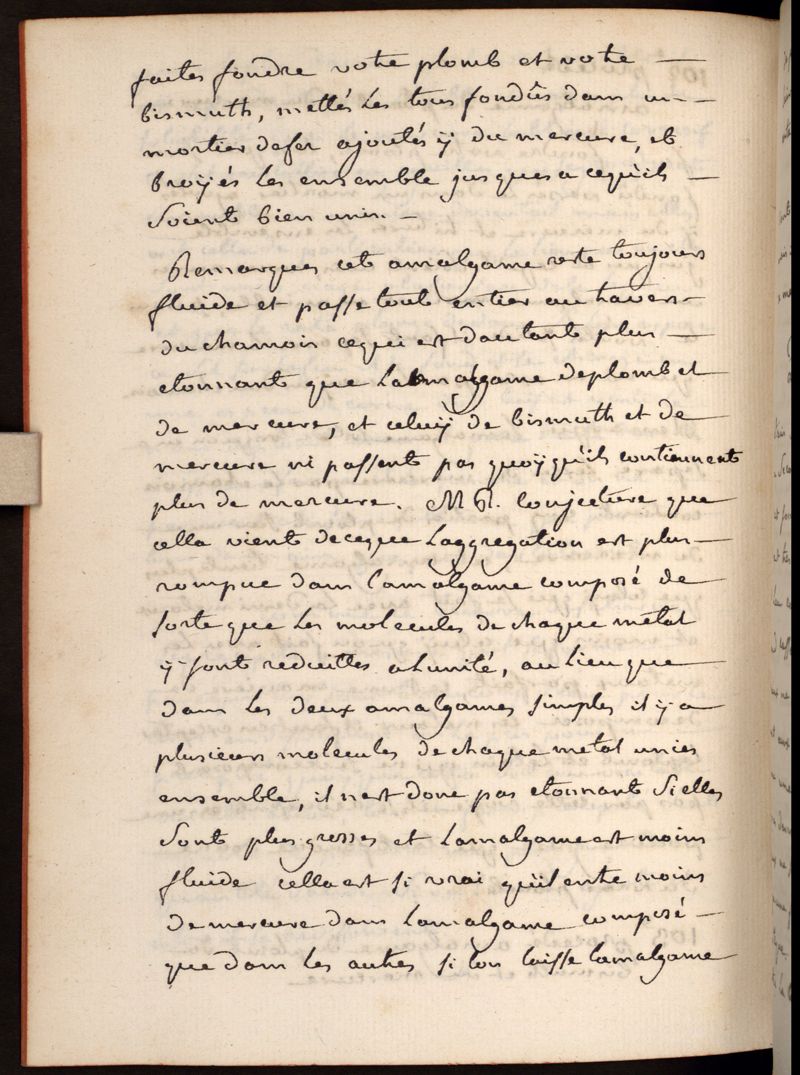 faites fondre votre plomb et votre —
bismuth, mettés les tous fondus dans un —
mortier de fer ajoutés ÿ du mercure, et
broÿés les ensemble jusques a cequ'ils —
soient bien unis. —
Remarques cet amalgame reste toujours
fluide et passe tout entier au travers —
du chamois cequi est dautant plus —
etonnant que Lamalgame deplomb et
de mercure, et celuÿ de bismuth et de
mercure ni passent pas quoÿqu'ils contiennent
plus de mercure. M R. conjecture que
cella vient deceque Laggregation est plus —
rompue dans l'amalgame composé de
sorte que les molecules de chaque metal
ÿ sont reduittes a Lunité, au lieu que
dans les deux amalgames simples il y a
plusieurs molecules de chaque metal unies
ensemble, il nest donc pas etonnant si elles
sont plus grosses et Lamalgame est moins
fluide cella est si vrai qu'il entre moins
de mercure dans Lamalgame composé —
que dans les autres si lon laisse lamalgame